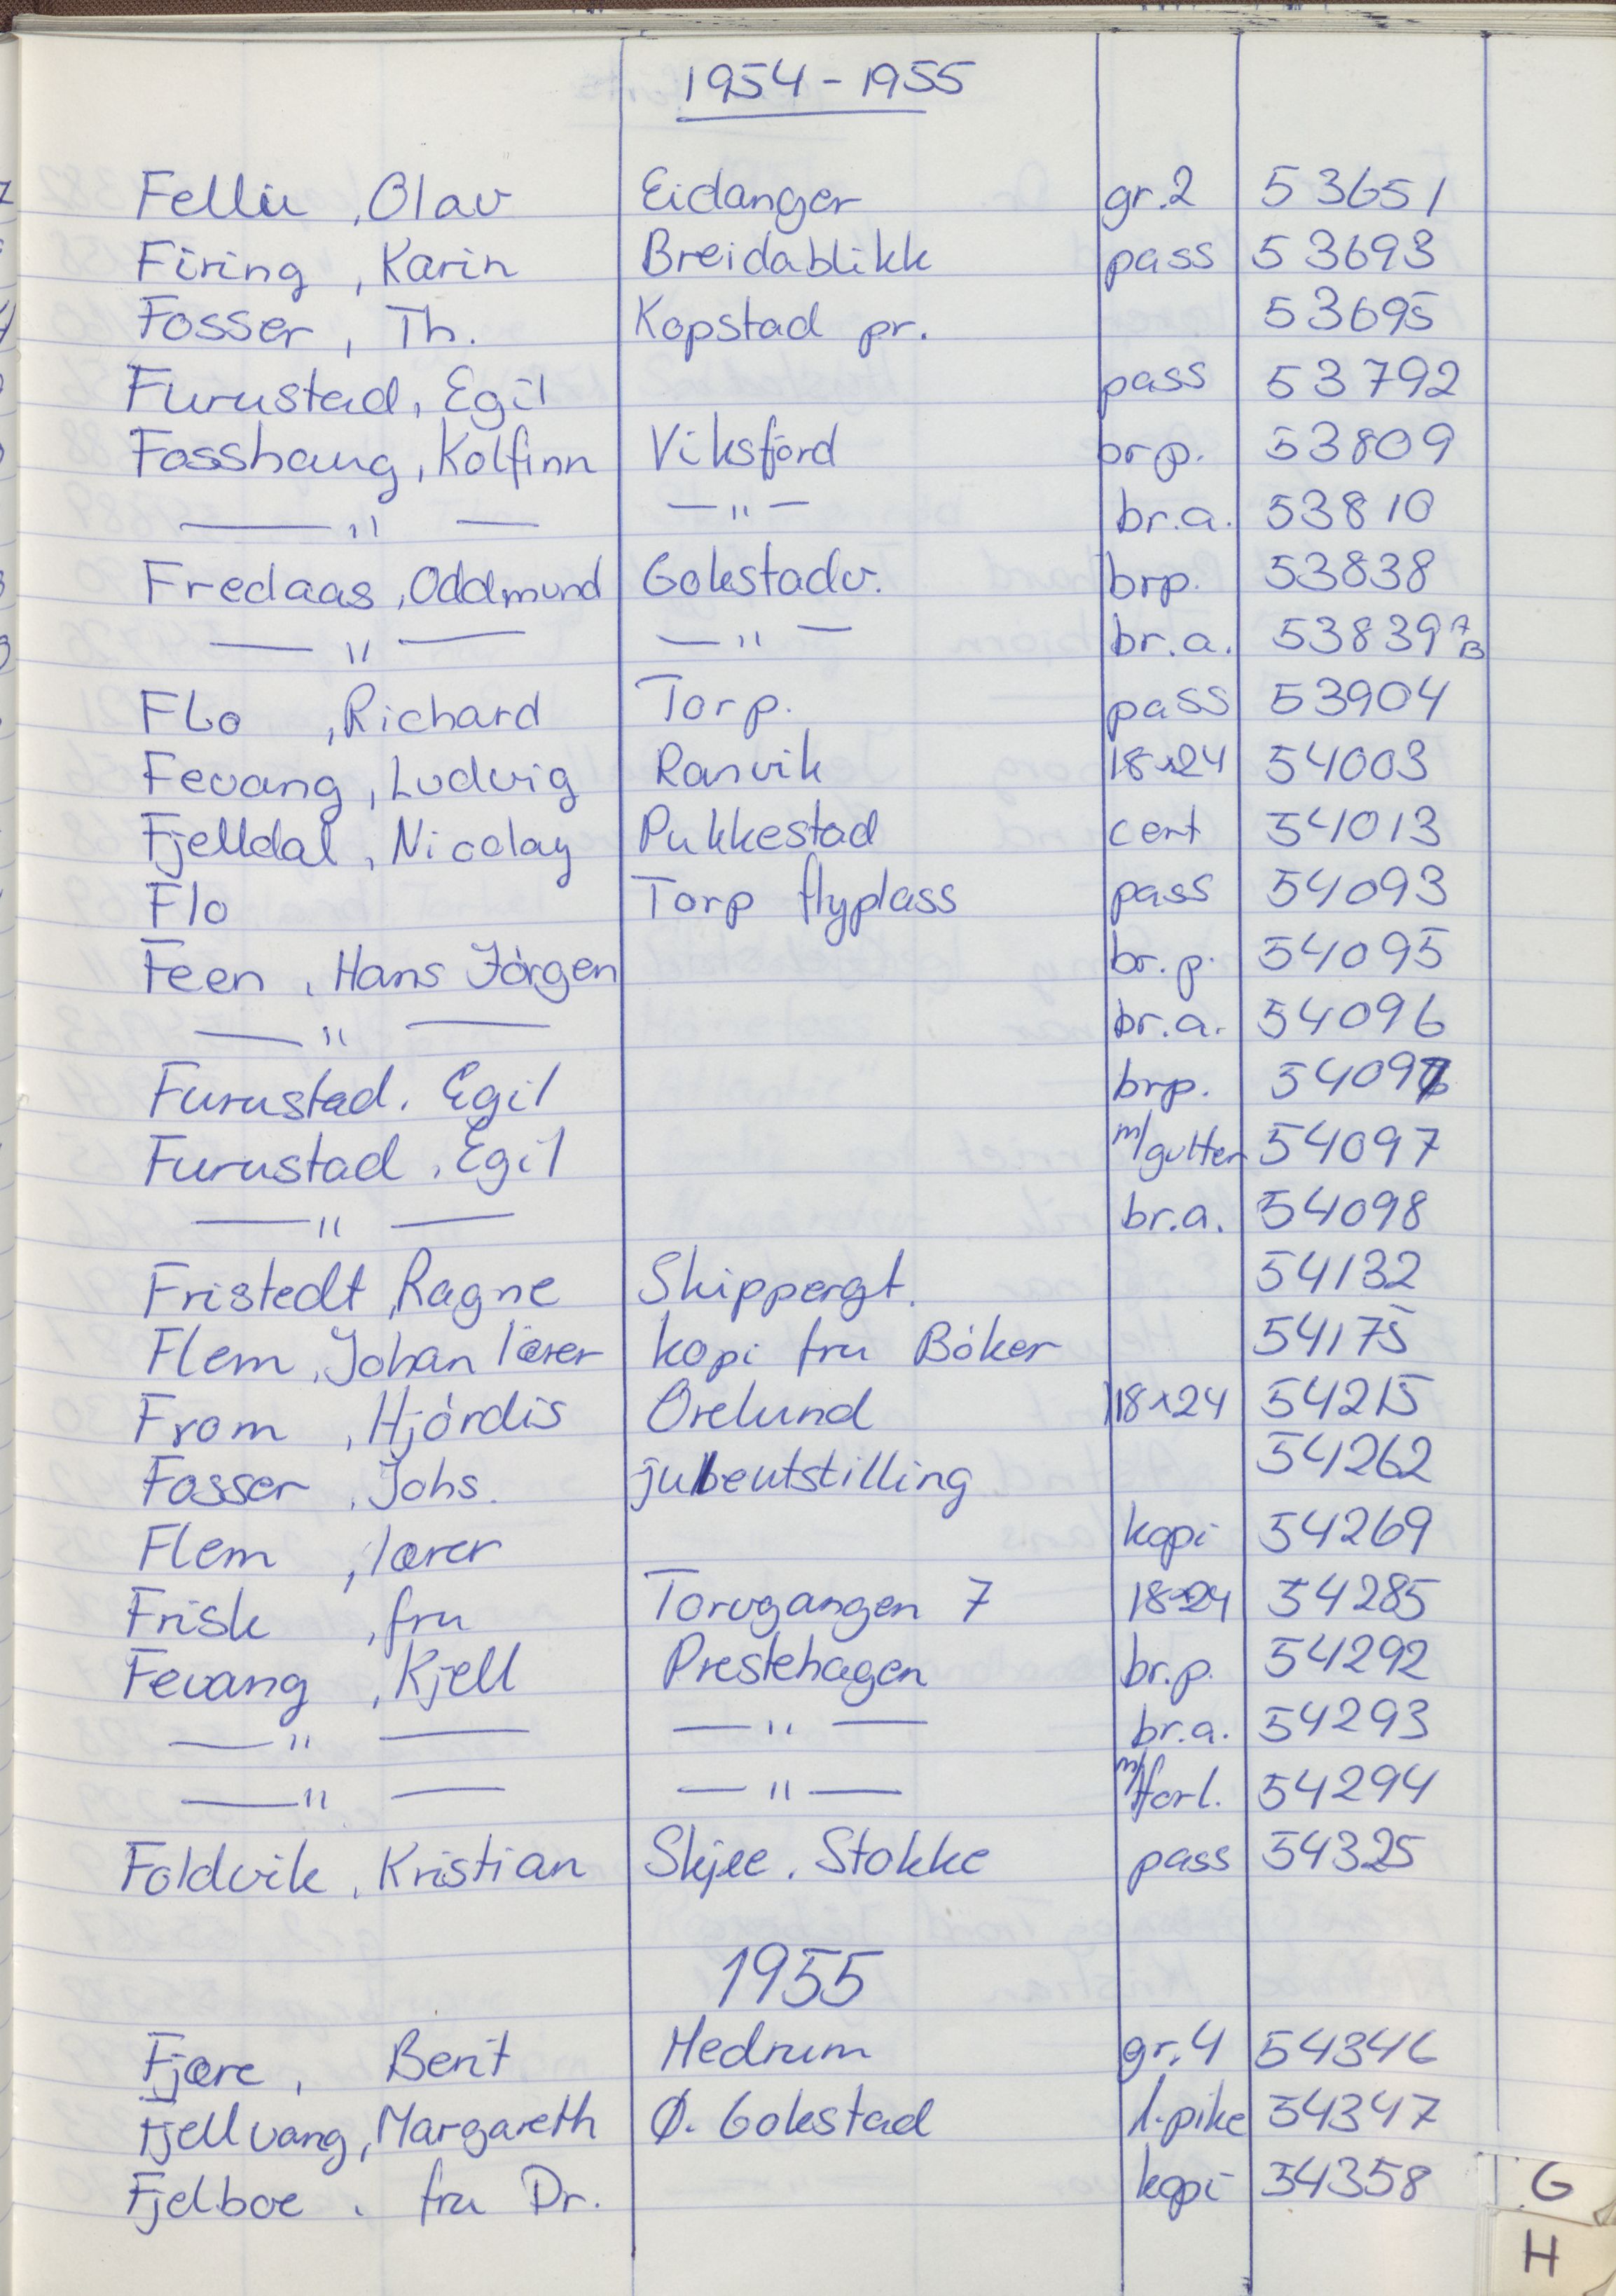 1954-1955
Fellie, Olav Eidanger gr.2 53651
Firing, Karin Breidablikk pass 53693
Fosser, Th. Kopstad pr. 53695
Furustad, Egil pass 53792
Fosshaug, Kolfinn Viksfjord brp. 53809
—"— —"— br.a. 53810
Fredaas, Oddmund Gokstadv. brp. 53838
—"— —"— br.a. 53839 A B
Flo, Richard Torp. pass 53904
Fevang, Ludvig Ranvik 18x24 54003
Fjelldal, Nicolay Pukkestad cert 54013
Flo Torp flyplass pass 54093
Feen, Hans Jörgen br.p. 54095
—"— br.a. 54096
Furustad. Egil brp. 54097
Furustad, Egil m/gutten 54097
—"— br.a. 54098
Fristedt, Ragne Skippergt. 54132
Flem, Johan lærer kopi fru Böker 54175
From, Hjördis Orelund 18x24 54215
Fosser, Johs. juleutstilling 54262
Flem, lærer kopi 54269
Frisk, fru Torvgangen 7 18x24 54285
Fevang, Kjell Prestehagen br.p. 54292
—"— —"— br.a. 54293
—"— —"— m/forl. 54294
Foldvik, Kristian Skjee. Stokke pass 54325
1955
Fjære, Berit Hedrum gr.4 54346
Fjellvang, Margareth Ø. Gokstad l.pike 54347
Fjelboe, fru Dr. kopi 54358
G
H